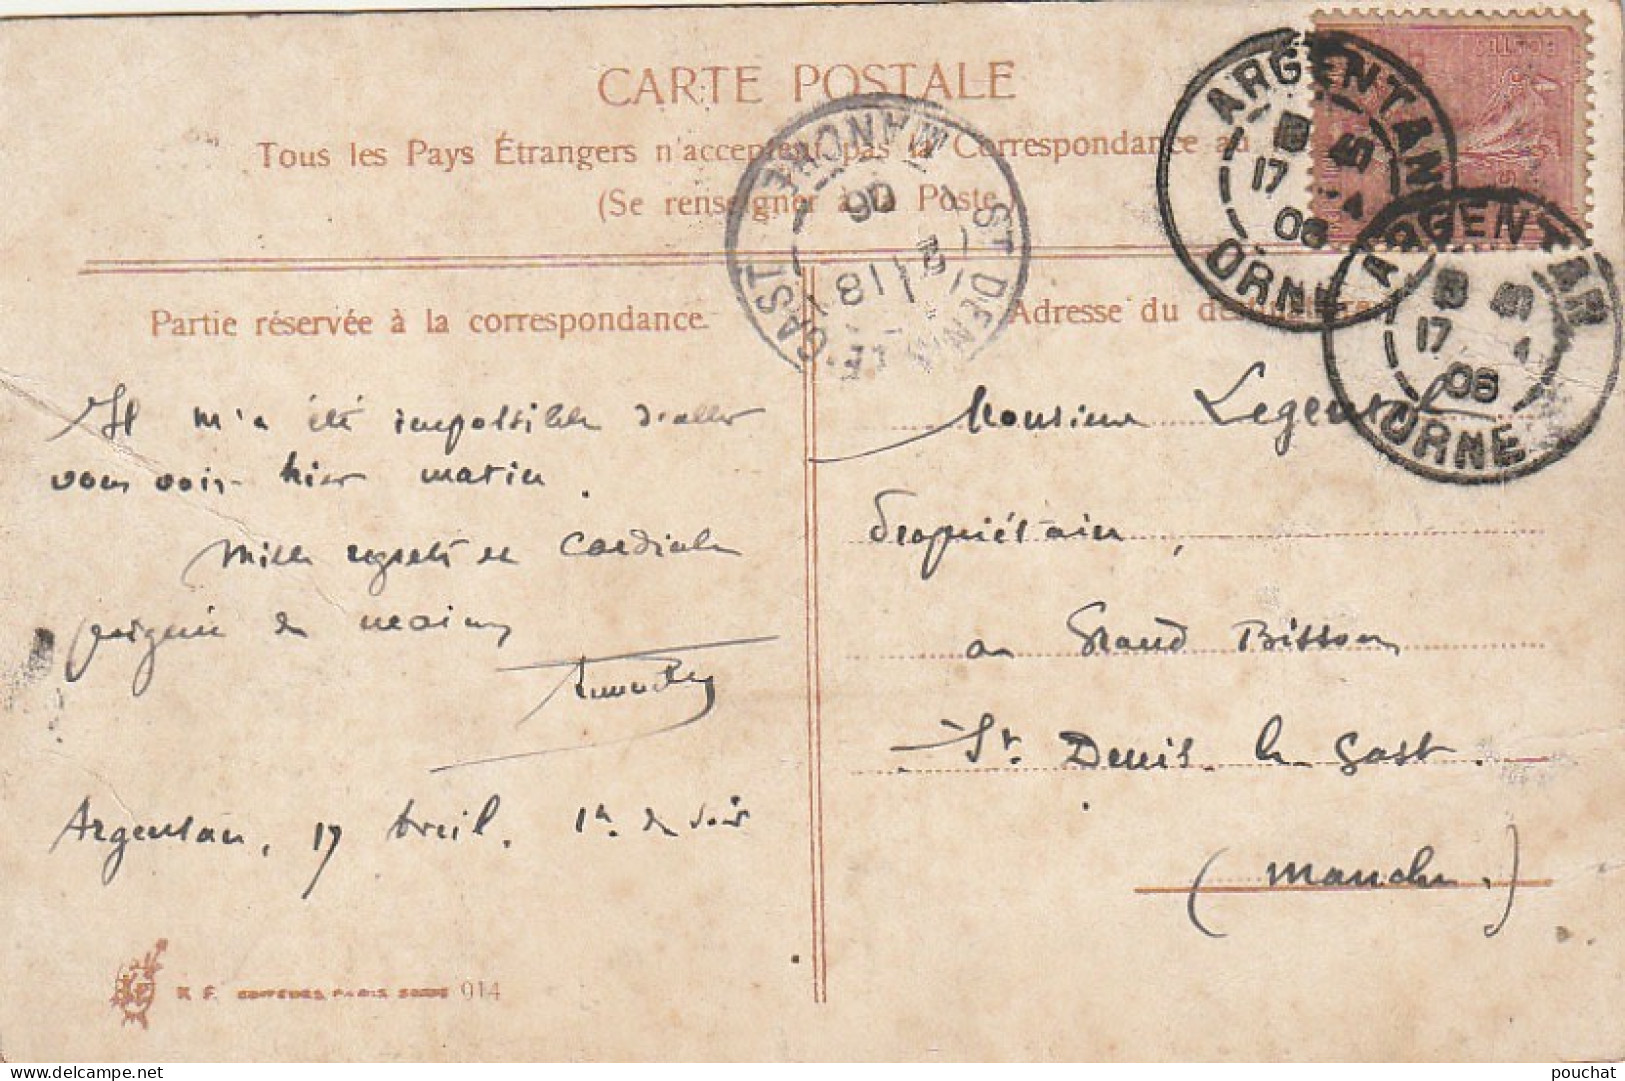 CARTE POSTALE
Tous les Pays Étrangers n'acceptent pas la Correspondance au
(Se renseigner à la Poste)
ARGENTAN
17 4
06
ORNE
ARGENTAN
17 4
06
ORNE
ST DENIS LE GAST
18
06
MANCHE
Partie réservée à la correspondance
Adresse du destinataire
Il m'a été impossible d'aller
vous voir hier matin.
Mille regrets et cordiale
poignée de mains
Argentan, 17 Avril. 1h. du soir
Monsieur
Propriétaire,
au Grand Bisson
St. Denis le Gast.
(Manche.)
K F. EDITEURS, PARIS 914
pouchat